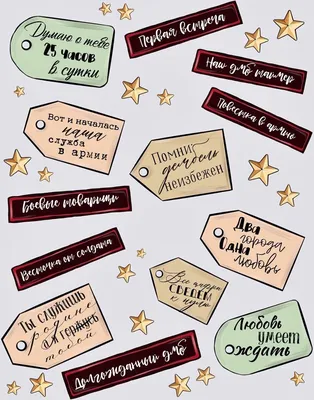 Думаю о тебе
25 часов
в сутки
Первая встреча
Наш дмб таймер
Повестка в армию
Вот и началась
наша
служба
в армии
Помни:
дембель
неизбежен
Боевые товарищи
Два
города
Одна
любовь
Весточка от солдата
Все дороги
СВЕДЕМ
к нулю
Ты служишь
родине
Я горжусь
тобой
Любовь
умеет
ждать
Долгожданный дмб